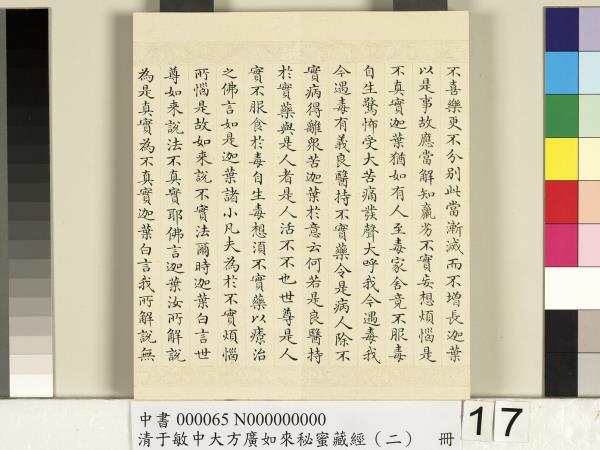 不喜樂更不分別此當漸減而不增長迦葉
以是事故應當解知羸劣不實妄想煩惱是
不真實迦葉猶如有人至毒家舍竟不服毒
自生驚怖受大苦痛發聲大呼我今遇毒我
今遇毒有義良醫持不實藥令是病人除不
實病得離眾苦迦葉於意云何若是良醫持
於實藥與是人者是人活不不也世尊是人
實不服食於毒自生毒想須不實藥以療治
之佛言如是迦葉諸小凡夫為於不實煩惱
所惱是故如來說不實法爾時迦葉白言世
尊如來說法不真實耶佛言迦葉汝所解說
為是真實為不真實迦葉白言我所解說無
中書 000065 N000000000
清于敏中大方廣如來秘蜜藏經（二） 冊
17